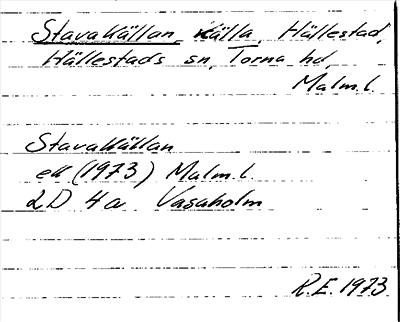 Stavakällan, källa, Hällestad,
Hällestads sn, Torna hd,
Malm.l.
Stavakällan
ek (1973) Malm.l.
2D 4a Vasaholm
R.E. 1973